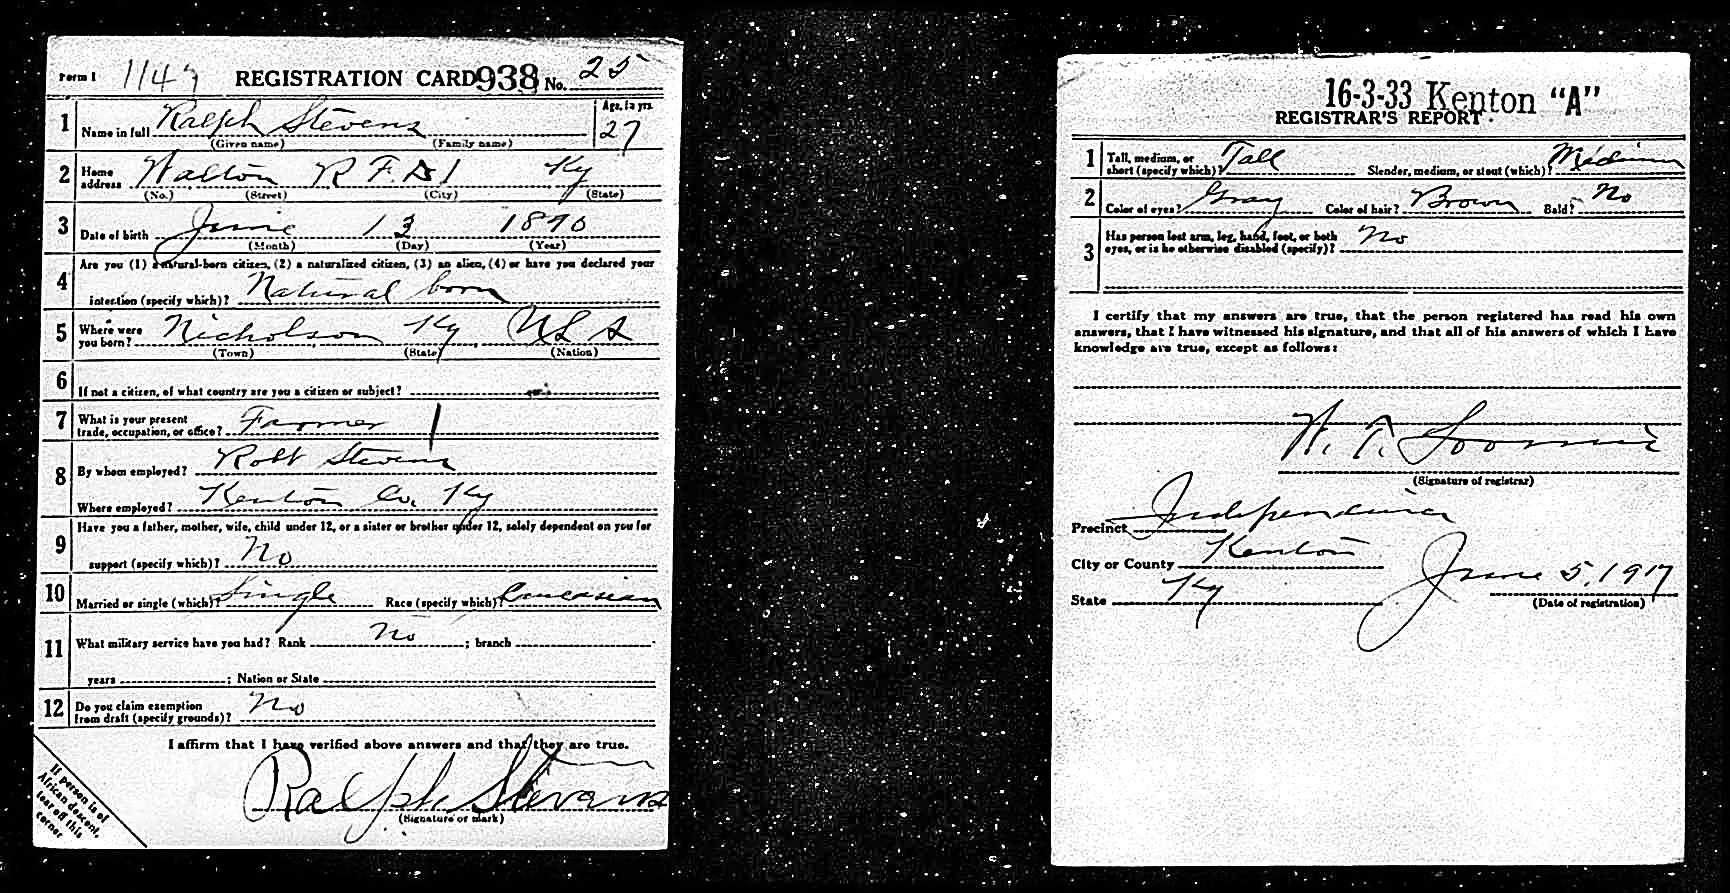 Form 1 1147 REGISTRATION CARD 938 No. 25
1 Name in full Ralph Stevens Age, in yrs. 27
(Given name) (Family name)
2 Home address Walton R F D 1 Ky
(No.) (Street) (City) (State)
3 Date of birth June 13 1890
(Month) (Day) (Year)
4 Are you (1) a natural-born citizen, (2) a naturalized citizen, (3) an alien, (4) or have you declared your
intention (specify which)? Natural born
5 Where were you born? Nicholson Ky U S A
(Town) (State) (Nation)
6 If not a citizen, of what country are you a citizen or subject?
7 What is your present
trade, occupation, or office? Farmer
8 By whom employed? Robt Stevens
Where employed? Kenton Co. Ky
9 Have you a father, mother, wife, child under 12, or a sister or brother under 12, solely dependent on you for
support (specify which)? No
10 Married or single (which)? Single Race (specify which)? Caucasian
11 What military service have you had? Rank No ; branch
years ; Nation or State
12 Do you claim exemption
from draft (specify grounds)? No
I affirm that I have verified above answers and that they are true.
Ralph Stevens
(Signature or mark)
If person is of
African descent,
tear off this
corner.
16-3-33 Kenton "A"
REGISTRAR'S REPORT.
1 Tall, medium, or
short (specify which)? Tall Slender, medium, or stout (which)? Medium
2 Color of eyes? Gray Color of hair? Brown Bald? No
3 Has person lost arm, leg, hand, foot, or both
eyes, or is he otherwise disabled (specify)? No
I certify that my answers are true, that the person registered has read his own
answers, that I have witnessed his signature, and that all of his answers of which I have
knowledge are true, except as follows:
W. T. Loomis
(Signature of registrar)
Precinct Independence
City or County Kenton
State Ky June 5, 1917
(Date of registration)